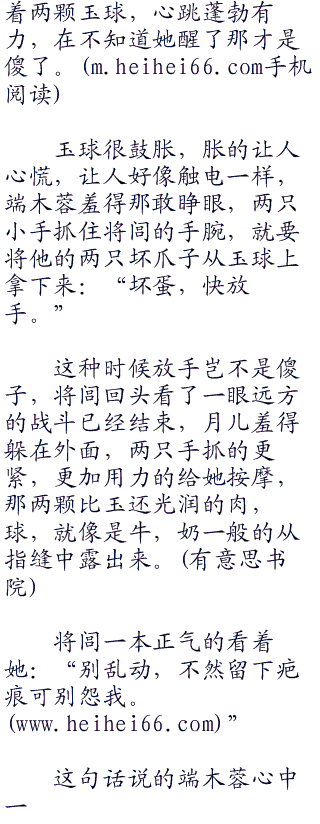 着两颗玉球，心跳蓬勃有
力，在不知道她醒了那才是
傻了。(m.heihei66.com手机
阅读)
玉球很鼓胀，胀的让人
心慌，让人好像触电一样，
端木蓉羞得那敢睁眼，两只
小手抓住将闾的手腕，就要
将他的两只坏爪子从玉球上
拿下来：“坏蛋，快放
手。”
这种时候放手岂不是傻
子，将闾回头看了一眼远方
的战斗已经结束，月儿羞得
躲在外面，两只手抓的更
紧，更加用力的给她按摩，
那两颗比玉还光润的肉，
球，就像是牛，奶一般的从
指缝中露出来。(有意思书
院)
将闾一本正气的看着
她：“别乱动，不然留下疤
痕可别怨我。
(www.heihei66.com)”
这句话说的端木蓉心中
一